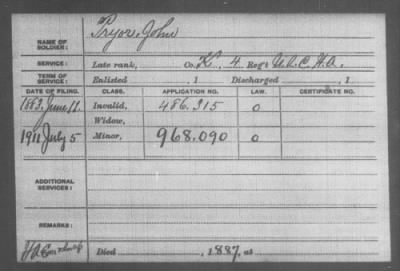 NAME OF SOLDIER: Pryor, John
SERVICE: Late rank, Co. K, 4 Reg't U.S.C.H.A.
TERM OF SERVICE: Enlisted , 1 Discharged , 1
DATE OF FILING. CLASS. APPLICATION NO. LAW. CERTIFICATE NO.
1883, June 11. Invalid, 486.315 O
Widow,
1911 July 5 Minor, 968.090 O
ADDITIONAL SERVICES:
REMARKS:
Died , 1887, at